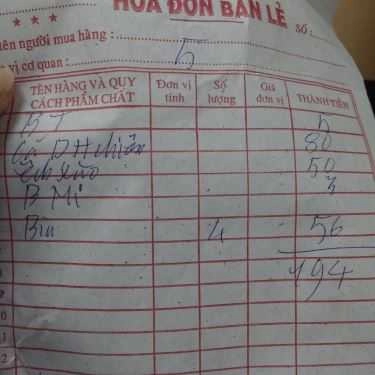 HÓA ĐƠN BÁN LẺ
Số:
★ ★ ★
tên người mua hàng :
vị cơ quan : 5
TÊN HÀNG VÀ QUY CÁCH PHẨM CHẤT Đơn vị tính Số lượng Giá đơn vị THÀNH TIỀN
BT 5
Cá chiên 80
Ếch Xào 50
B Mì 3
Bia 4 56
194